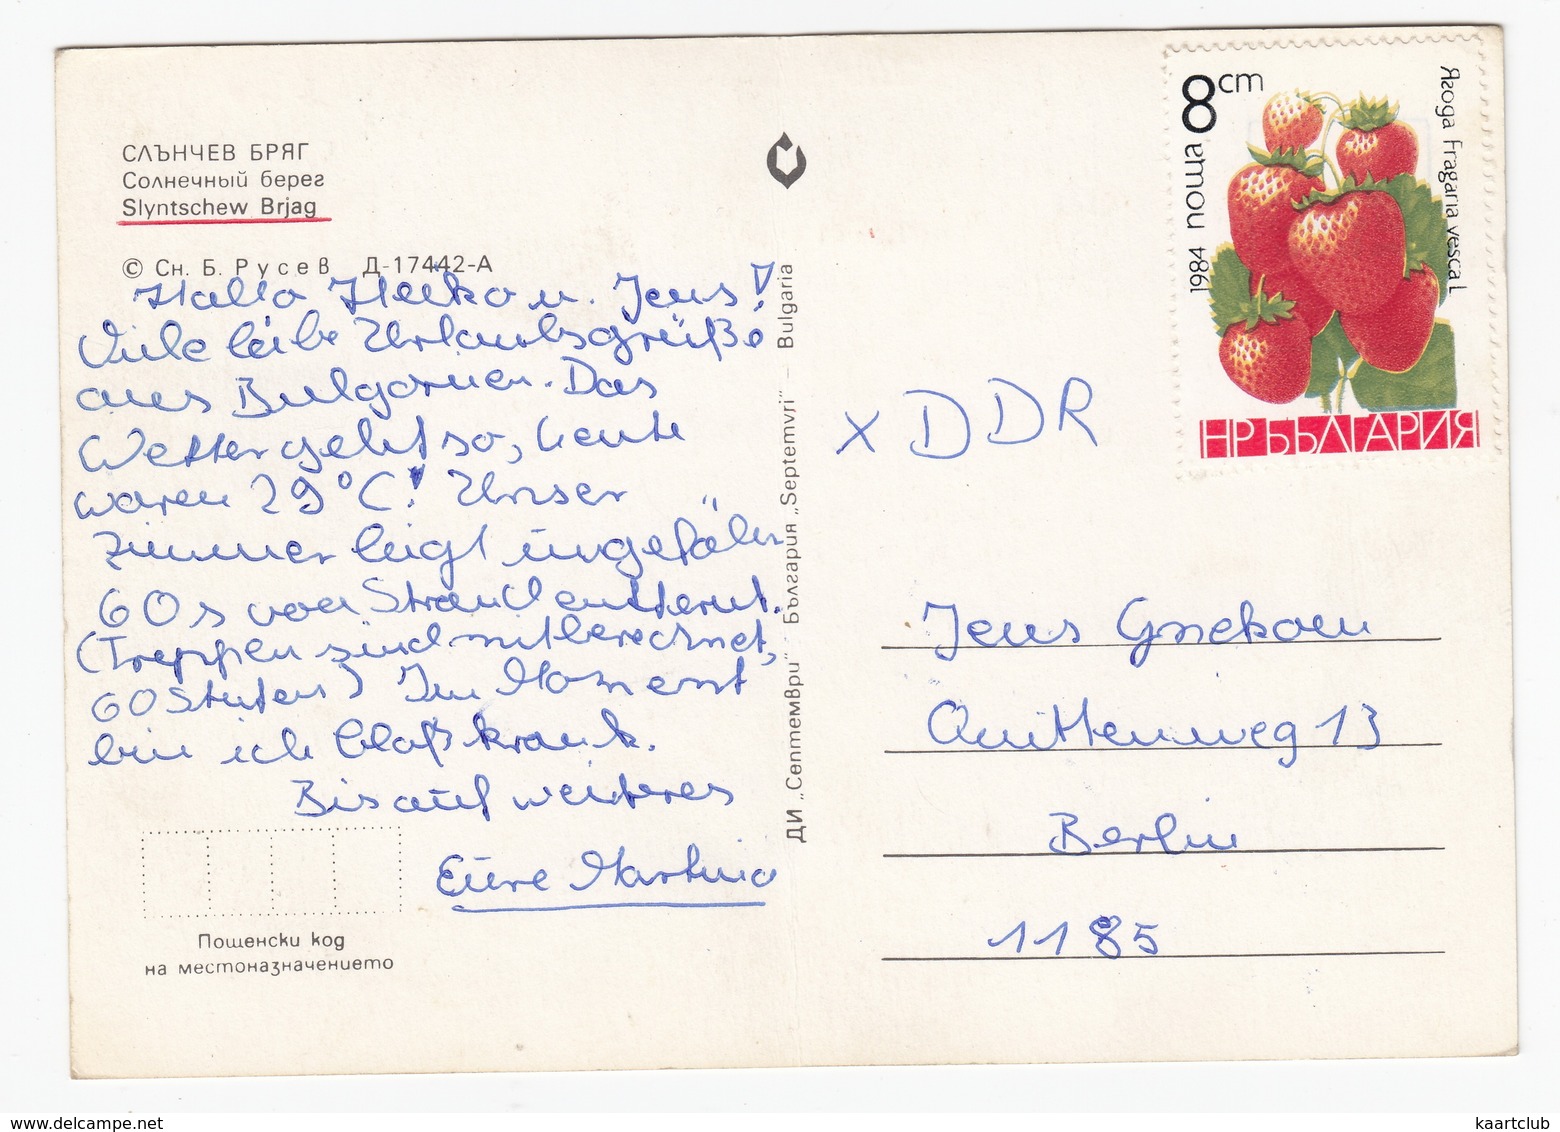 СЛЪНЧЕВ БРЯГ
Солнечный берег
Slyntschew Brjag
© Сн. Б. Русев Д-17442-А
Hallo Heiko u. Jens!
Viele liebe Urlaubsgrüße
aus Bulgarien. Das
Wetter geht so, heute
waren 29°C! Unser
Zimmer liegt ungefähr
60s von Strand entfernt.
(Treppen sind mitberechnet,
60 Stufen) Im Moment
bin ich bloß krank.
Bis auf weiteres
Eure Martina
Пощенски код
на местоназначението
ДИ „Септември" България „Septemvri" Bulgaria
8 cm
поща
1984
Ягода Fragaria vesca L
НР БЪЛГАРИЯ
x DDR
Jens
Quittenweg 13
Berlin
1185
kaartclub